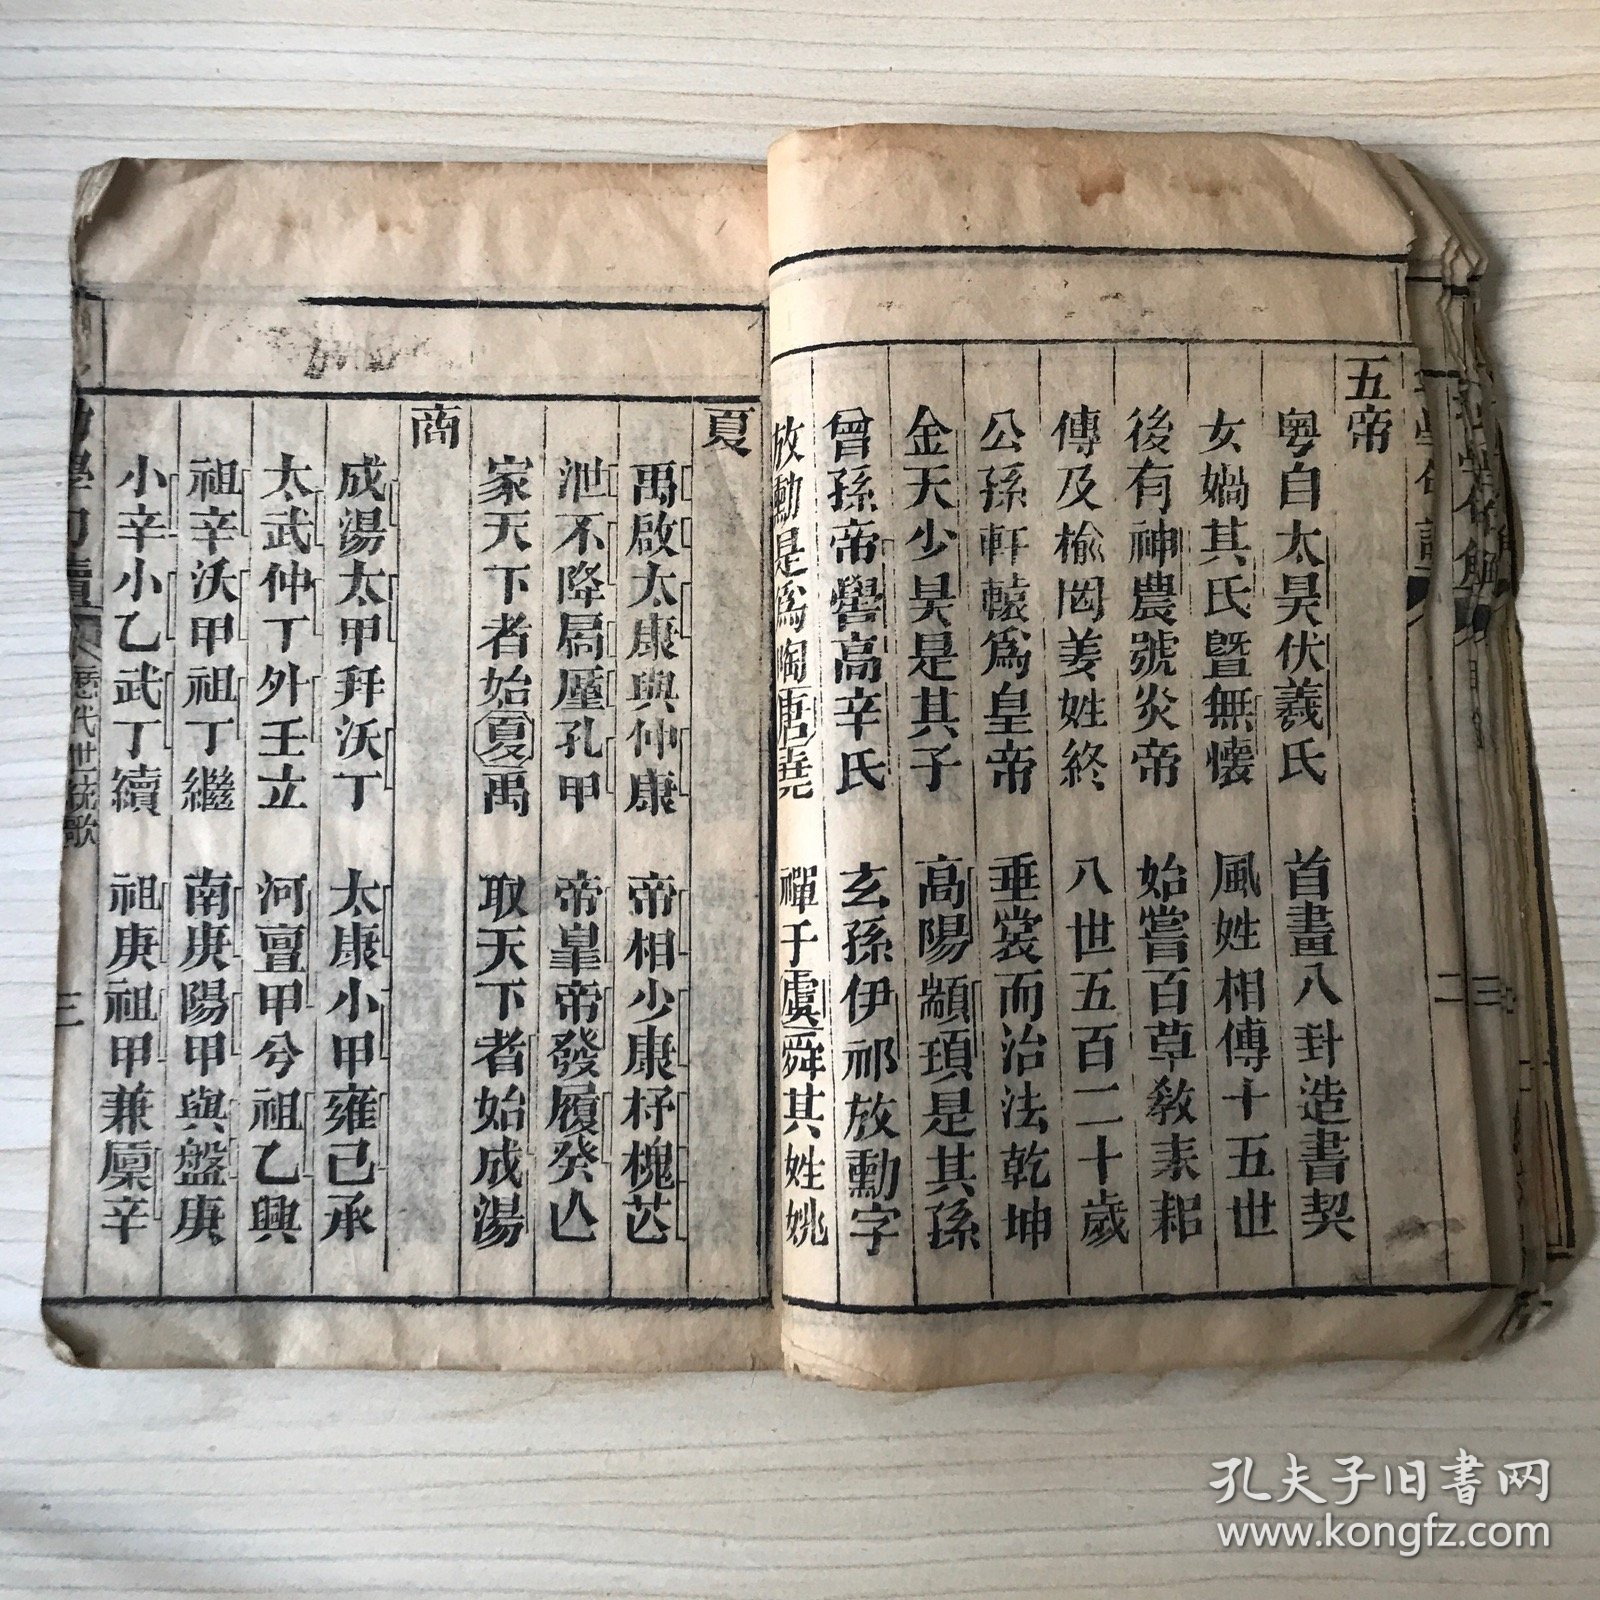 五帝
粵自太昊伏羲氏　首畫八卦造書契
女媧其氏曁無懷　風姓相傳十五世
後有神農號炎帝　始嘗百草敎耒耜
傳及榆罔姜姓終　八世五百二十歲
公孫軒轅爲皇帝　垂裳而治法乾坤
金天少昊是其子　高陽顓頊是其孫
曾孫帝嚳高辛氏　玄孫伊祁放勳字
放勳是爲陶唐堯　禪于虞舜其姓姚
夏
禹啟太康與仲康　帝相少康杼槐芒
泄不降扃廑孔甲　帝臯帝發履癸亾
家天下者始夏禹　取天下者始成湯
商
成湯太甲幷沃丁　太康小甲雍己承
太武仲丁外壬立　河亶甲兮祖乙興
祖辛沃甲祖丁繼　南庚陽甲與盤庚
小辛小乙武丁續　祖庚祖甲兼廩辛
幼學句讀　歷代世統歌　三
孔夫子旧书网
www.kongfz.com